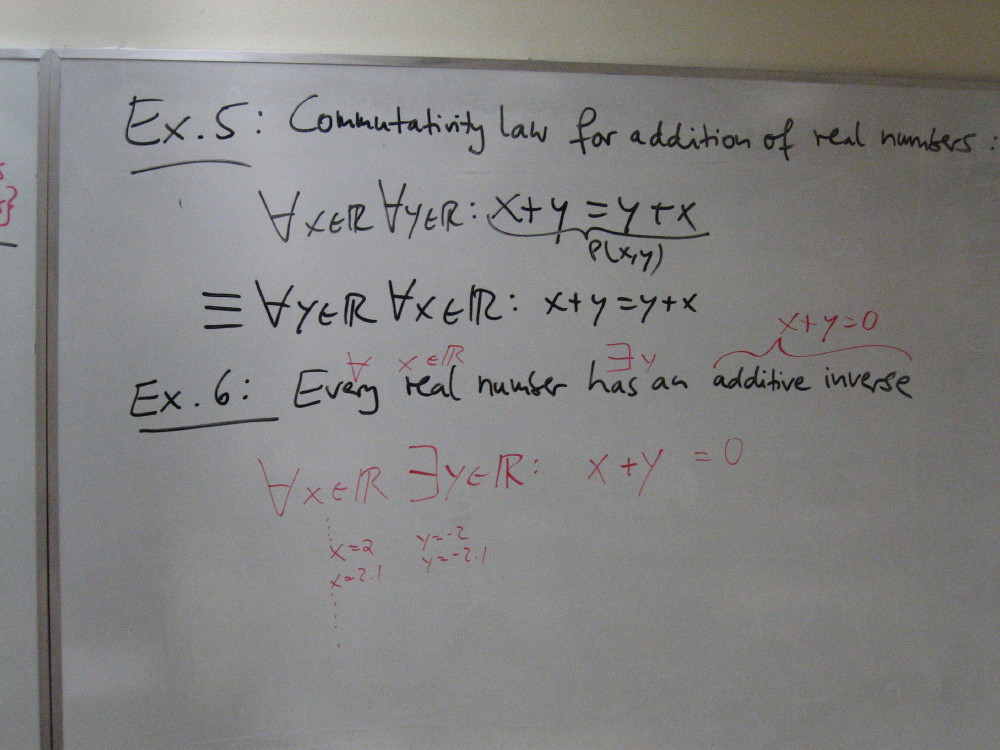 Ex. 5: Commutativity law for addition of real numbers:
∀x∈ℝ ∀y∈ℝ: x+y = y+x
P(x,y)
≡ ∀y∈ℝ ∀x∈ℝ: x+y = y+x
x+y=0
∀ x∈ℝ ∃y
Ex. 6: Every real number has an additive inverse
∀x∈ℝ ∃y∈ℝ: x+y = 0
x=2 y=-2
x=2.1 y=-2.1